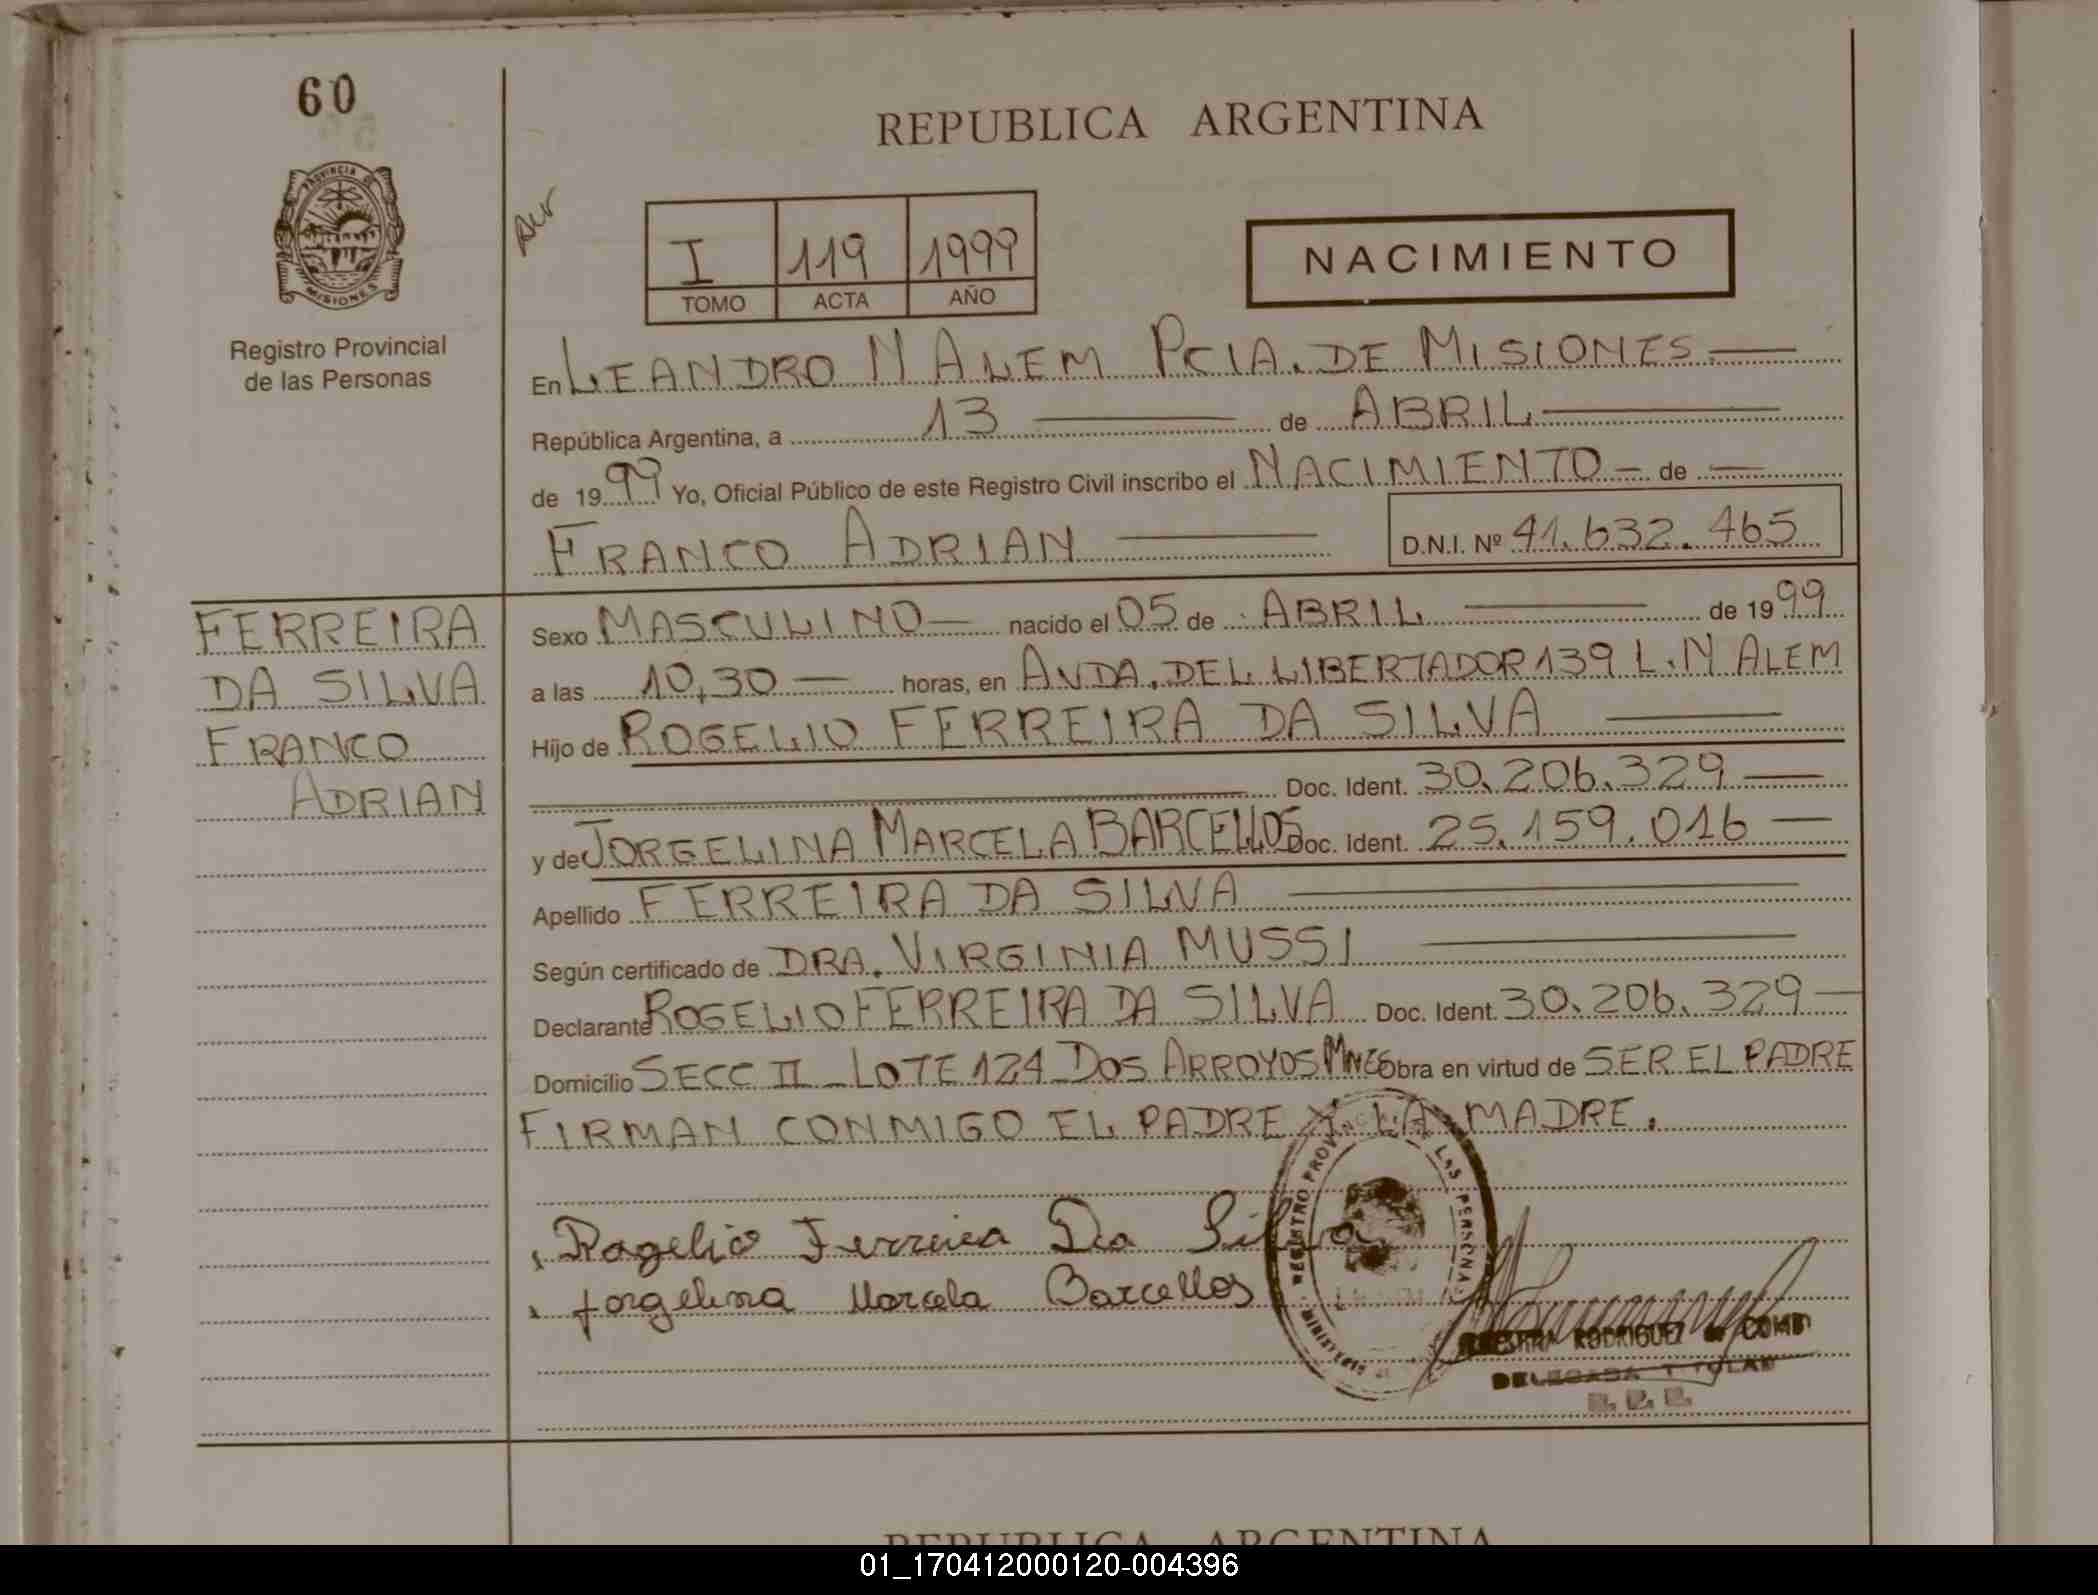 60
REPUBLICA ARGENTINA
PROVINCIA DE
MISIONES
Registro Provincial
de las Personas
I 119 1999
TOMO ACTA AÑO
NACIMIENTO
En LEANDRO N ALEM PCIA. DE MISIONES
República Argentina, a 13 de ABRIL
de 1999 Yo, Oficial Público de este Registro Civil inscribo el NACIMIENTO de
FRANCO ADRIAN D.N.I. Nº 41.632.465
FERREIRA
DA SILVA
FRANCO
ADRIAN
Sexo MASCULINO nacido el 05 de ABRIL de 1999
a las 10,30 horas, en AVDA. DEL LIBERTADOR 139 L. N ALEM
Hijo de ROGELIO FERREIRA DA SILVA
Doc. Ident. 30.206.329
y de JORGELINA MARCELA BARCELLOS Doc. Ident. 25.159.016
Apellido FERREIRA DA SILVA
Según certificado de DRA. VIRGINIA MUSSI
Declarante ROGELIO FERREIRA DA SILVA Doc. Ident. 30.206.329
Domicilio SECC II LOTE 124 DOS ARROYOS MNES Obra en virtud de SER EL PADRE
FIRMAN CONMIGO EL PADRE Y LA MADRE.
Rogelio Ferreira Da Silva
Jorgelina Marcela Barcellos
REGISTRO PROVINCIAL LAS PERSONAS
MINISTERIO
RODRIGUEZ de COMB
DELEGADA TITULAR
REPUBLICA ARGENTINA
01_170412000120-004396